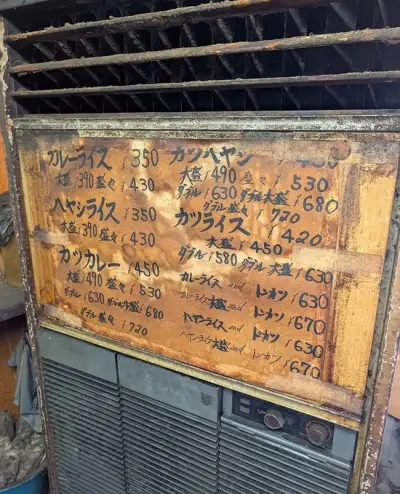 カレーライス ¥350
大盛¥390 盛々¥430
ハヤシライス ¥350
大盛¥390 盛々¥430
カツカレー ¥450
大盛¥490 盛々¥530
ダブル¥630 ダブル大盛¥680
ダブル盛々¥720
カツハヤシ
大盛¥490 盛々¥530
ダブル¥630 ダブル大盛¥680
ダブル盛々¥720
カツライス ¥420
大盛¥450
ダブル¥580 ダブル大盛¥630
カレーライス and トンカツ ¥630
カレーライス大盛 and トンカツ ¥670
ハヤシライス and トンカツ ¥630
ハヤシライス大盛 and トンカツ ¥670